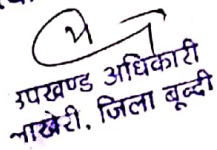 उपखण्ड अधिकारी
लाखेरी, जिला बून्दी